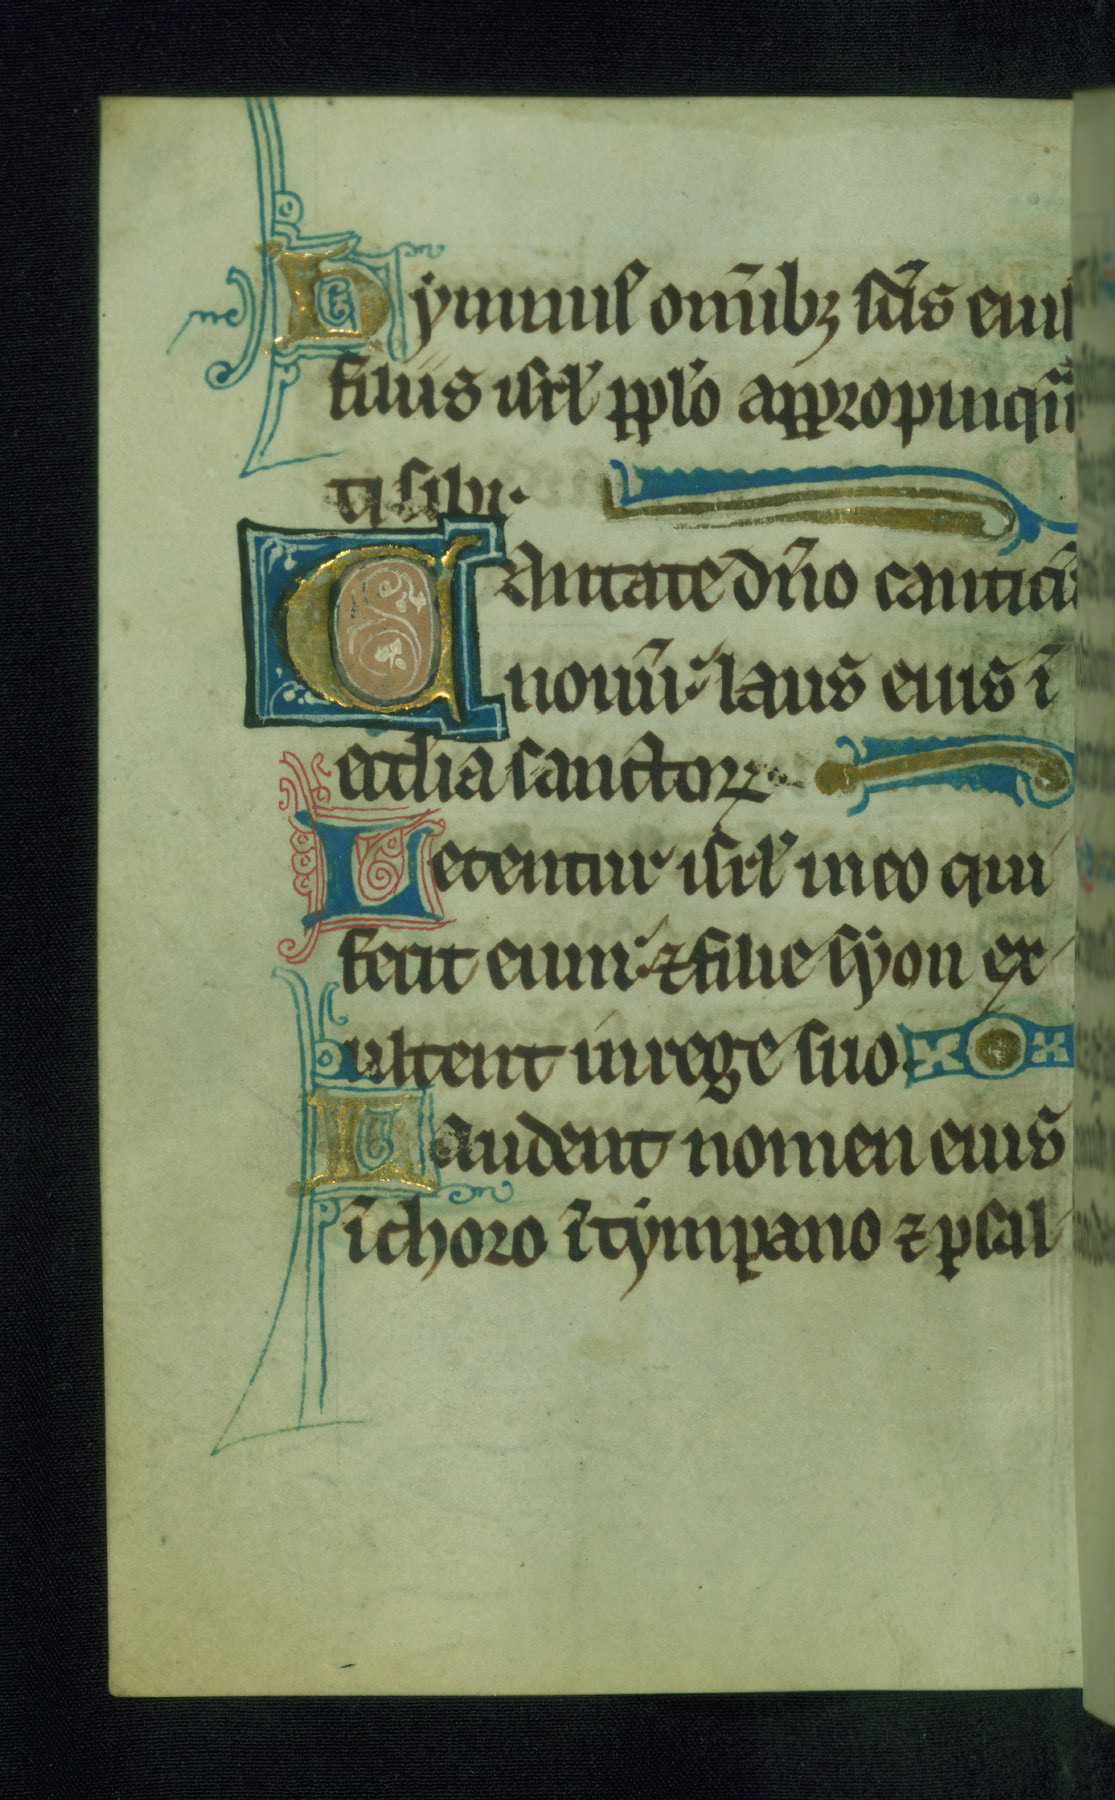 Hymnus om̄ibꝫ sc̄is eius
filiis isrl̓ pplo appropinqua
ti sibi.
Cantate dn̄o canticū
nouū: laus eius ī
ecclīa sanctoꝝ
Letentur isrl̓ in eo qui
fecit eum: ⁊ filie syon ex
ultent in rege suo.
Laudent nomen eius
ī choro ī tympano ⁊ psal